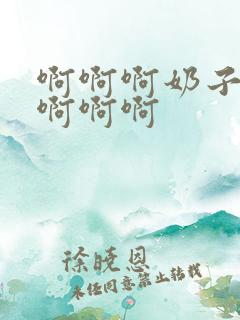 啊啊啊奶子
啊啊啊
徐晓恩
未经同意禁止转载